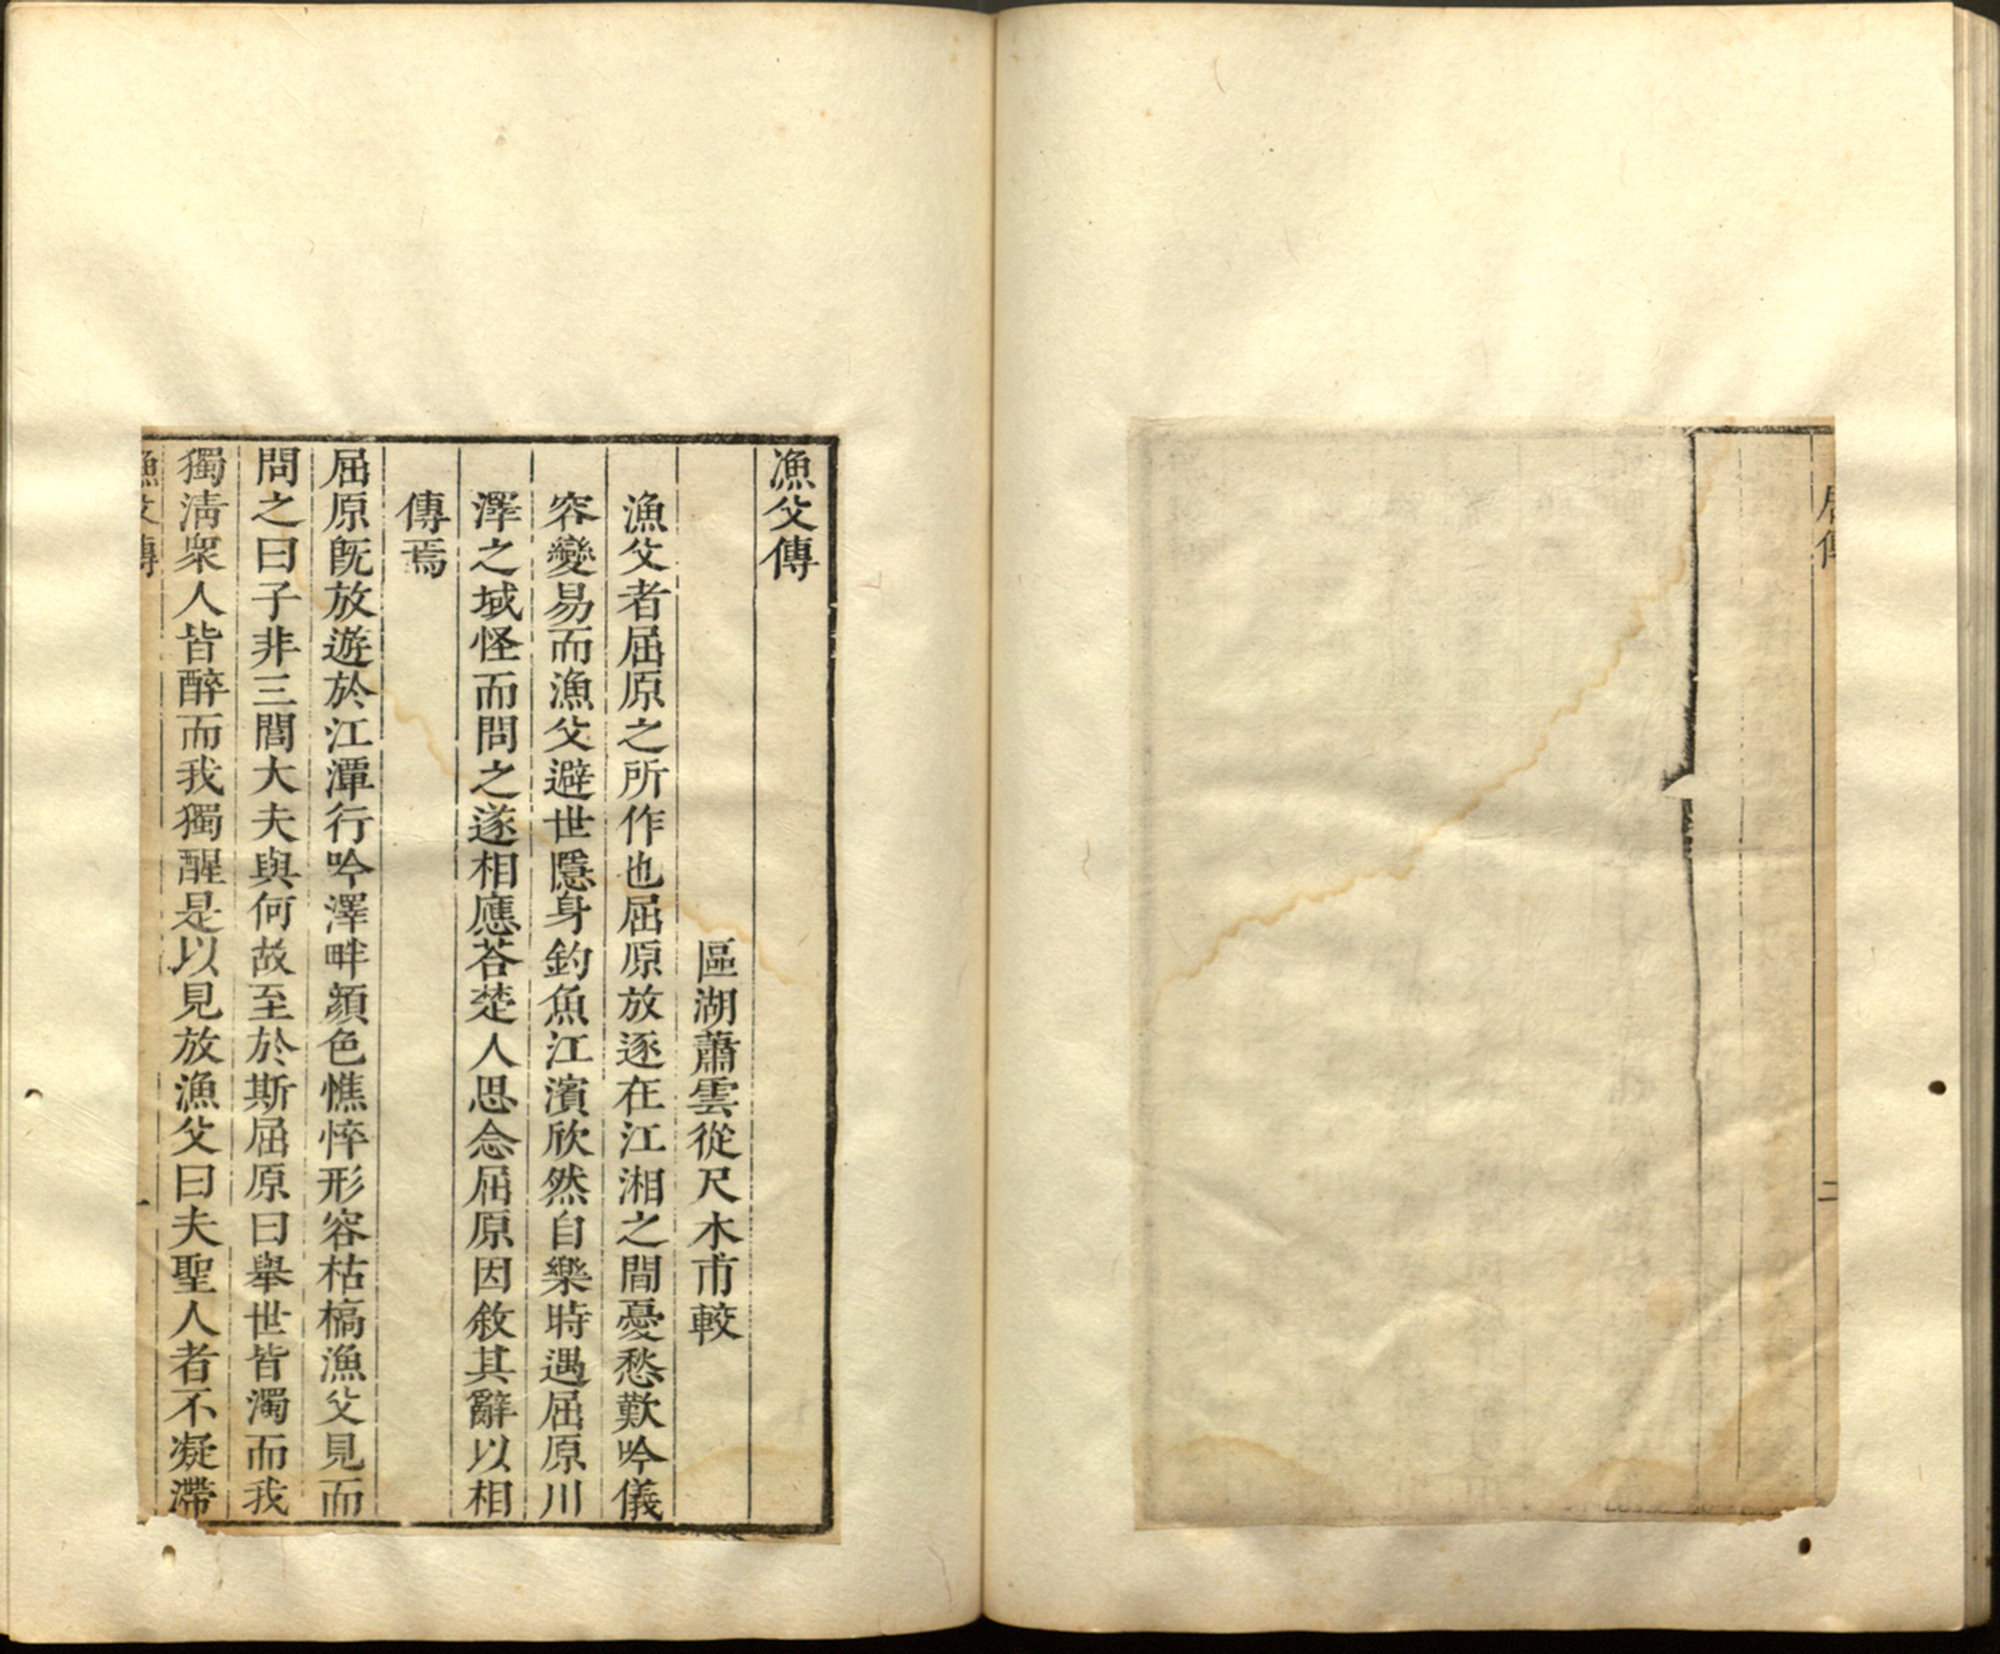 屈傳
二
漁父傳
區湖蕭雲從尺木甫較
漁父者屈原之所作也屈原放逐在江湘之間憂愁歎吟儀
容變易而漁父避世隱身釣魚江濱欣然自樂時遇屈原川
澤之域怪而問之遂相應荅楚人思念屈原因敘其辭以相
傳焉
屈原旣放遊於江潭行吟澤畔顔色憔悴形容枯槁漁父見而
問之曰子非三閭大夫與何故至於斯屈原曰舉世皆濁而我
獨清衆人皆醉而我獨醒是以見放漁父曰夫聖人者不凝滯
漁父傳
一